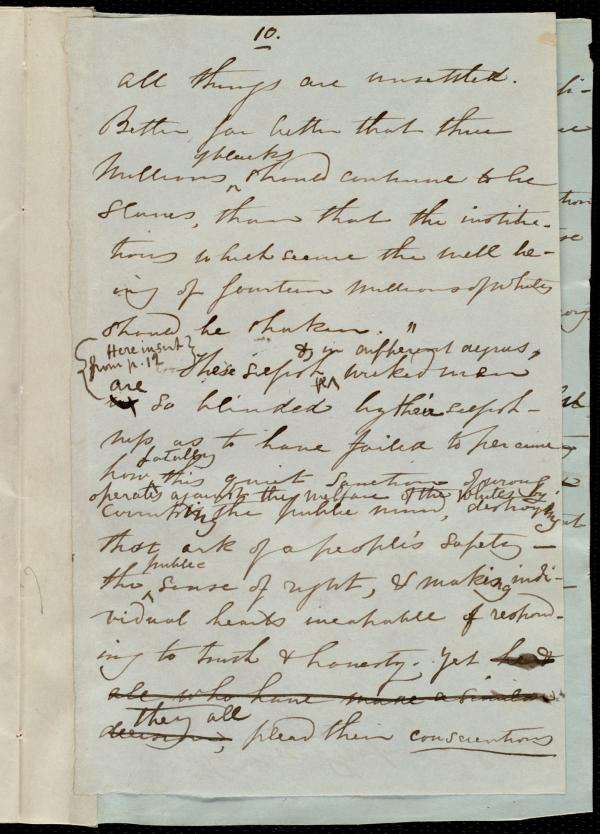 10.
all things are unsettled.
Better, far better that three
blacks
Millions, should continue to be
slaves, than that the institu-
tions which secure the well be-
ing of fourteen millions of whites
should be shaken."
Here insert
from p. 12
& in different degrees,
These selfish, wicked men
are so blinded by their selfish-
ness as to have failed to perceive
fatally
how this quiet sanction of wrong
operates against the welfare of the whites by
corrupting the public mind, destroying
that ark of a people's safety—
public
the sense of right, & making indi-
vidual hearts incapable of respond-
ing to truth & honesty. Yet he &
all who have made a similar
they all
decision, plead their conscientious